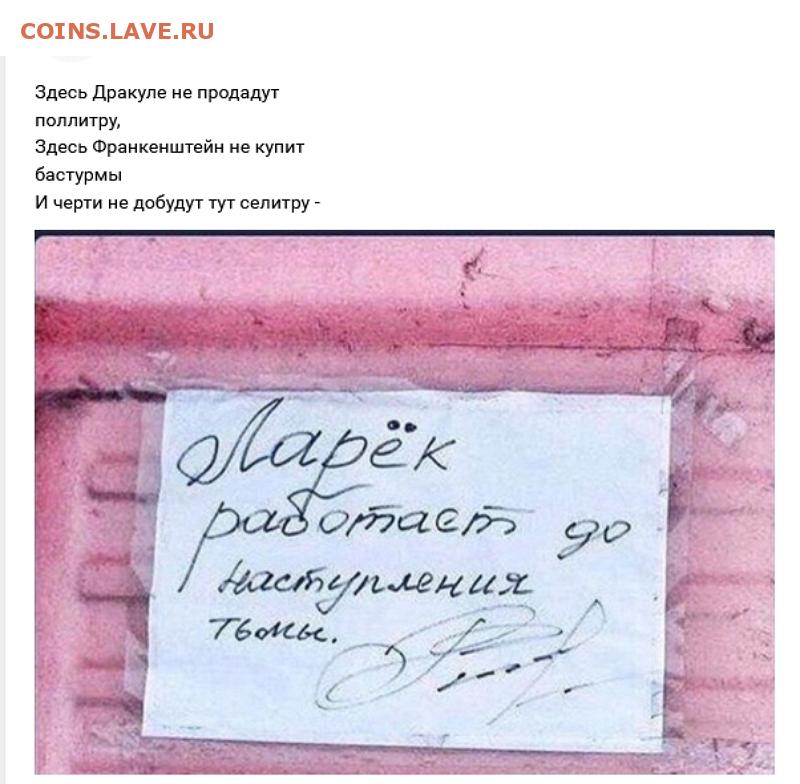 COINS.LAVE.RU
Здесь Дракуле не продадут
поллитру,
Здесь Франкенштейн не купит
бастурмы
И черти не добудут тут селитру -
Ларёк
работает до
наступления
тьмы.